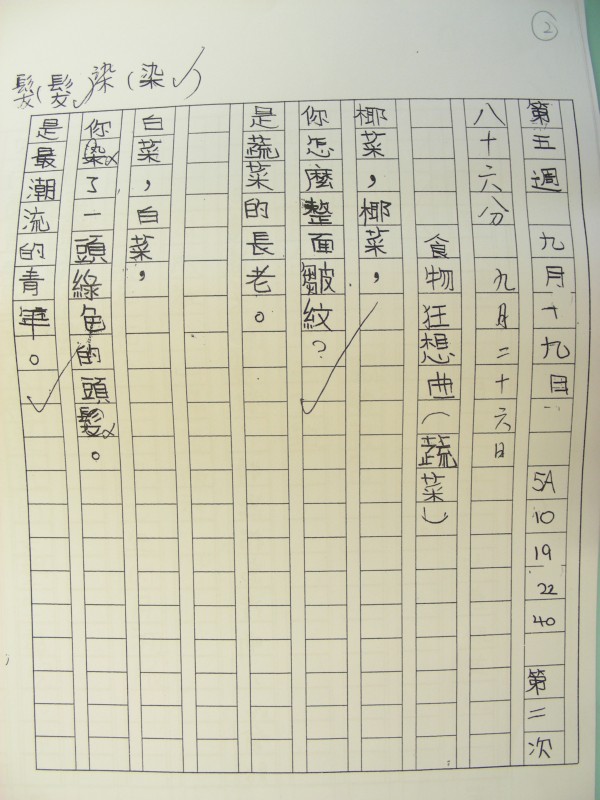 2
髮(髮✓)染(染✓)
第五週 九月十九日 5A 10 19 22 40 第二次
八十六分 九月二十六日
食物狂想曲(蔬菜)
椰菜，椰菜，
你怎麼整面皺紋？
是蔬菜的長老。
白菜，白菜，
你染了一頭綠色的頭髮。
是最潮流的青年。